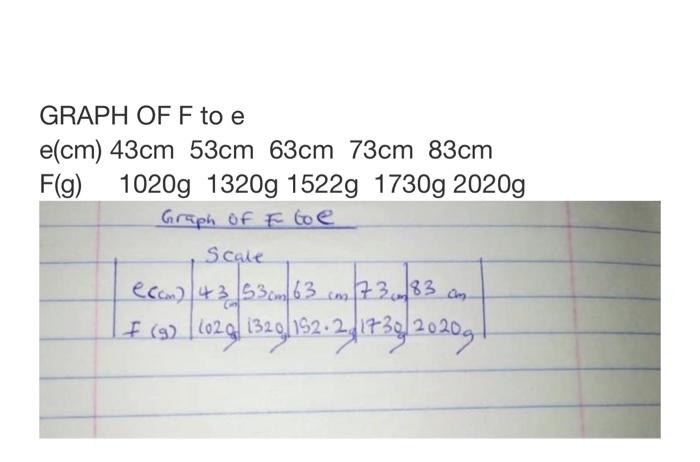 GRAPH OF F to e
e(cm) 43cm 53cm 63cm 73cm 83cm
F(g) 1020g 1320g 1522g 1730g 2020g
Graph of F to e
Scale
e(cm) 43cm 53cm 63 cm 73cm 83 cm
F (g) 102g 132g 152.2g 173g 2020g